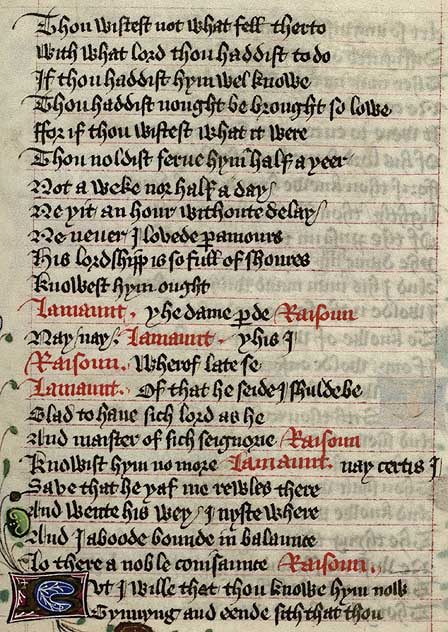 Thou wistest not what fell therto
With what lord thou haddist to do
If thou haddist hym wel knowe
Thou haddist nought be brought so lowe
ffor if thou wistest what it were
Thou noldist serue hym half a yeer
Not a weke nor half a day/
Ne yit an hour withoute delay/
Ne neuer I louede ꝑamours
His lordshipp is so full of shoures
Knowest hym ought
Lamaunt. yhe dame ꝑde Raisoun
Nay/nay/. Lamaunt. yhis I
Raisoun. Wherof late se
Lamaunt. Of that he seide I shulde be
Glad to haue sich lord as he
And maister of sich seignorie Raisoun
Knowist hym no more Lamaunt. nay certis I
Saue that he yaf me rewles there
And wente his wey/ I nyste where
And I aboode bounde in balaunce
Lo there a noble conisaunce Raisoun.
But I wille that thou knowe hym now
Gynnyng and eende sith that thou